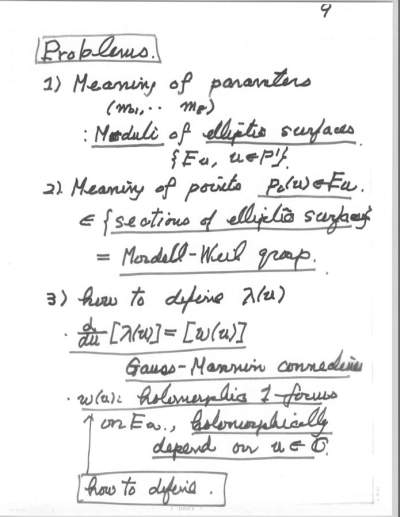 9
Problems.
1) Meaning of parameters
(m1, .. m8)
: Moduli of elliptic surfaces
{Eu, u∈P¹}.
2) Meaning of points p_i(u)∈Eu.
∈ {sections of elliptic surface}
= Mordell-Weil group.
3) how to define λ(u)
· d/du [λ(u)] = [w(u)]
Gauss-Mannin connection
· w(u): holomorphic 1-forms
on Eu., holomorphically
depend on u∈ℂ.
how to define.